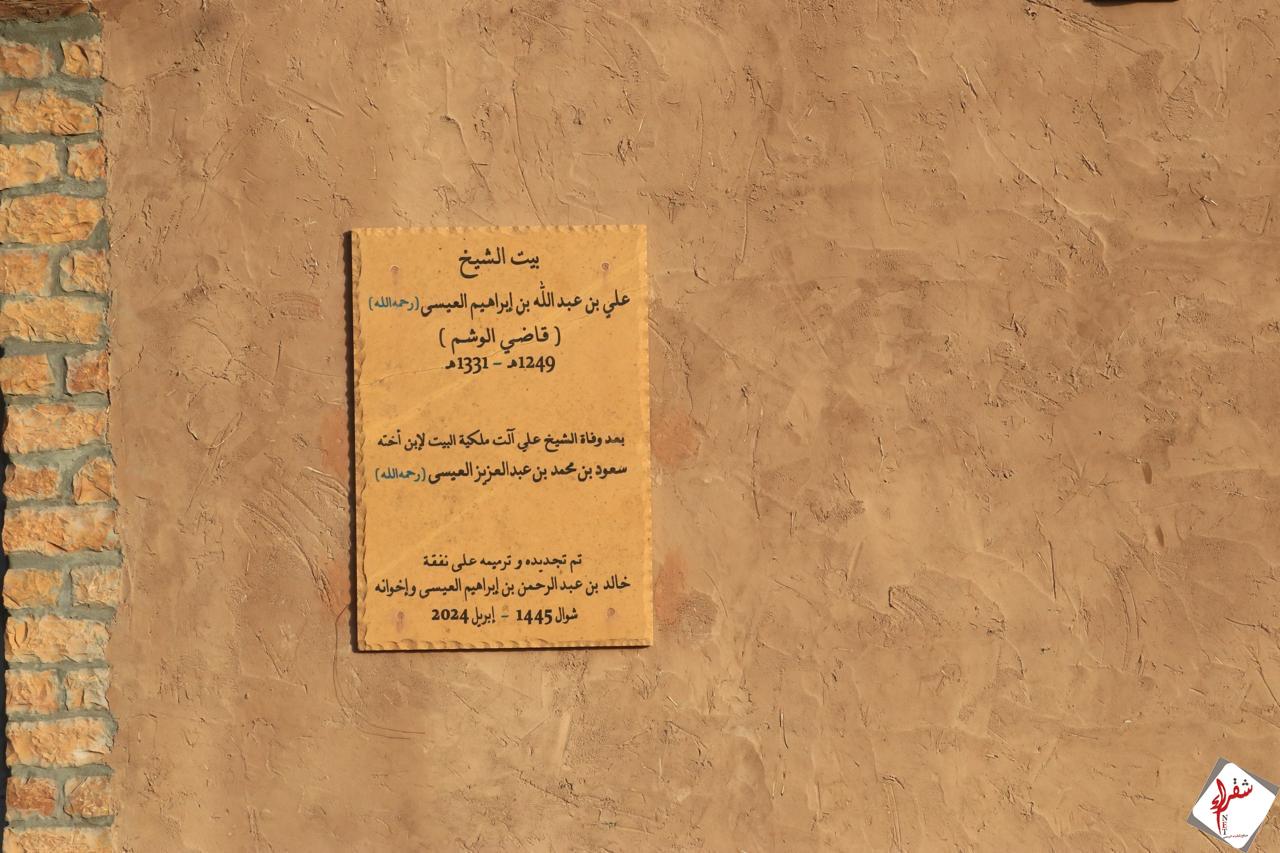 بيت الشيخ
علي بن عبد الله بن إبراهيم العيسى (رحمه الله)
( قاضي الوشم )
1249هـ – 1331هـ
بعد وفاة الشيخ علي آلت ملكية البيت لإبن أخته
سعود بن محمد بن عبدالعزيز العيسى (رحمه الله)
تم تجديده و ترميمه على نفقة
خالد بن عبد الرحمن بن إبراهيم العيسى وإخوانه
شوال 1445 – إبريل 2024
شقراء
NET